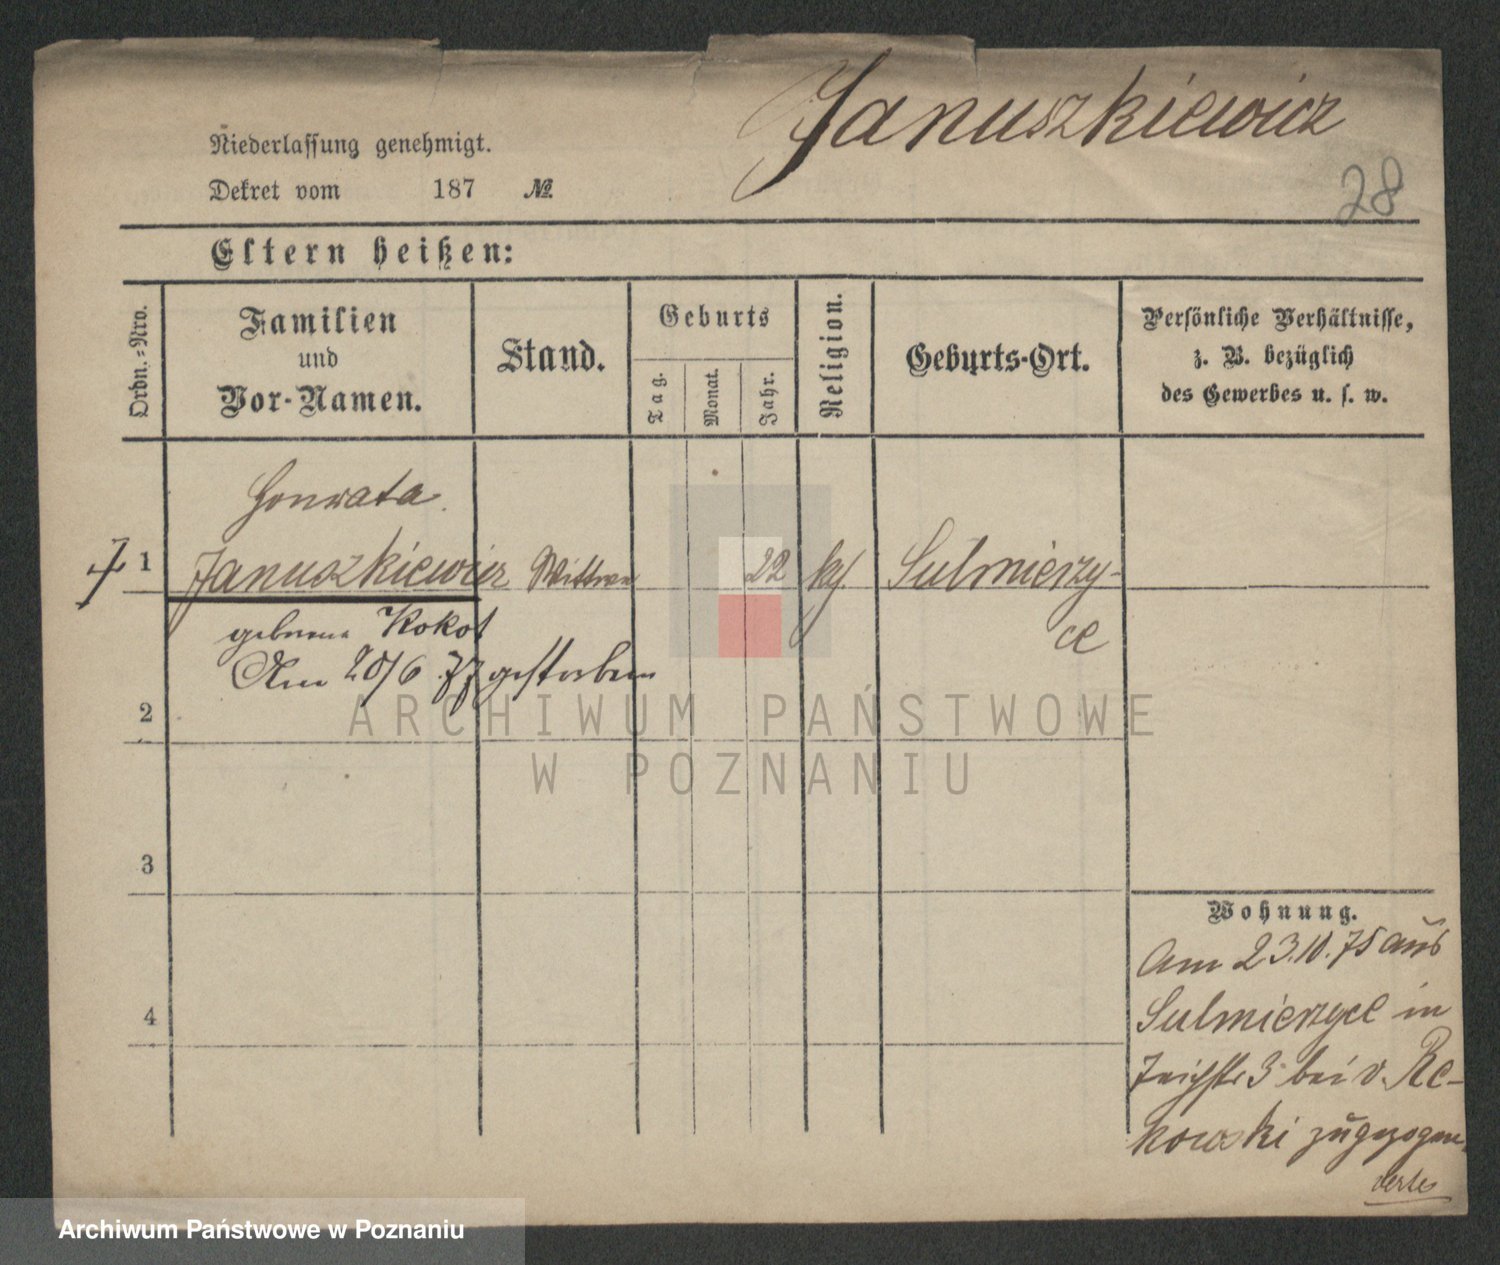 Januszkiewicz
28
Niederlassung genehmigt.
Dekret vom 187 №
Eltern heißen:
Ordn.-Nro.
Familien
und
Vor-Namen.
Stand.
Geburts
Tag.
Monat.
Jahr.
Religion.
Geburts-Ort.
Persönliche Verhältnisse,
z. B. bezüglich
des Gewerbes u. s. w.
Honrata
1 Januszkiewicz Wittwe 22 kţ Sulmierzy-
ce
geborene Kokot
Am 20/6 77 gestorben
2
3
4
Wohnung.
Am 23.10.75 aus
Sulmierzyce in
3 bei v. Re-
kowski zugezogen
ARCHIWUM PAŃSTWOWE
W POZNANIU
Archiwum Państwowe w Poznaniu